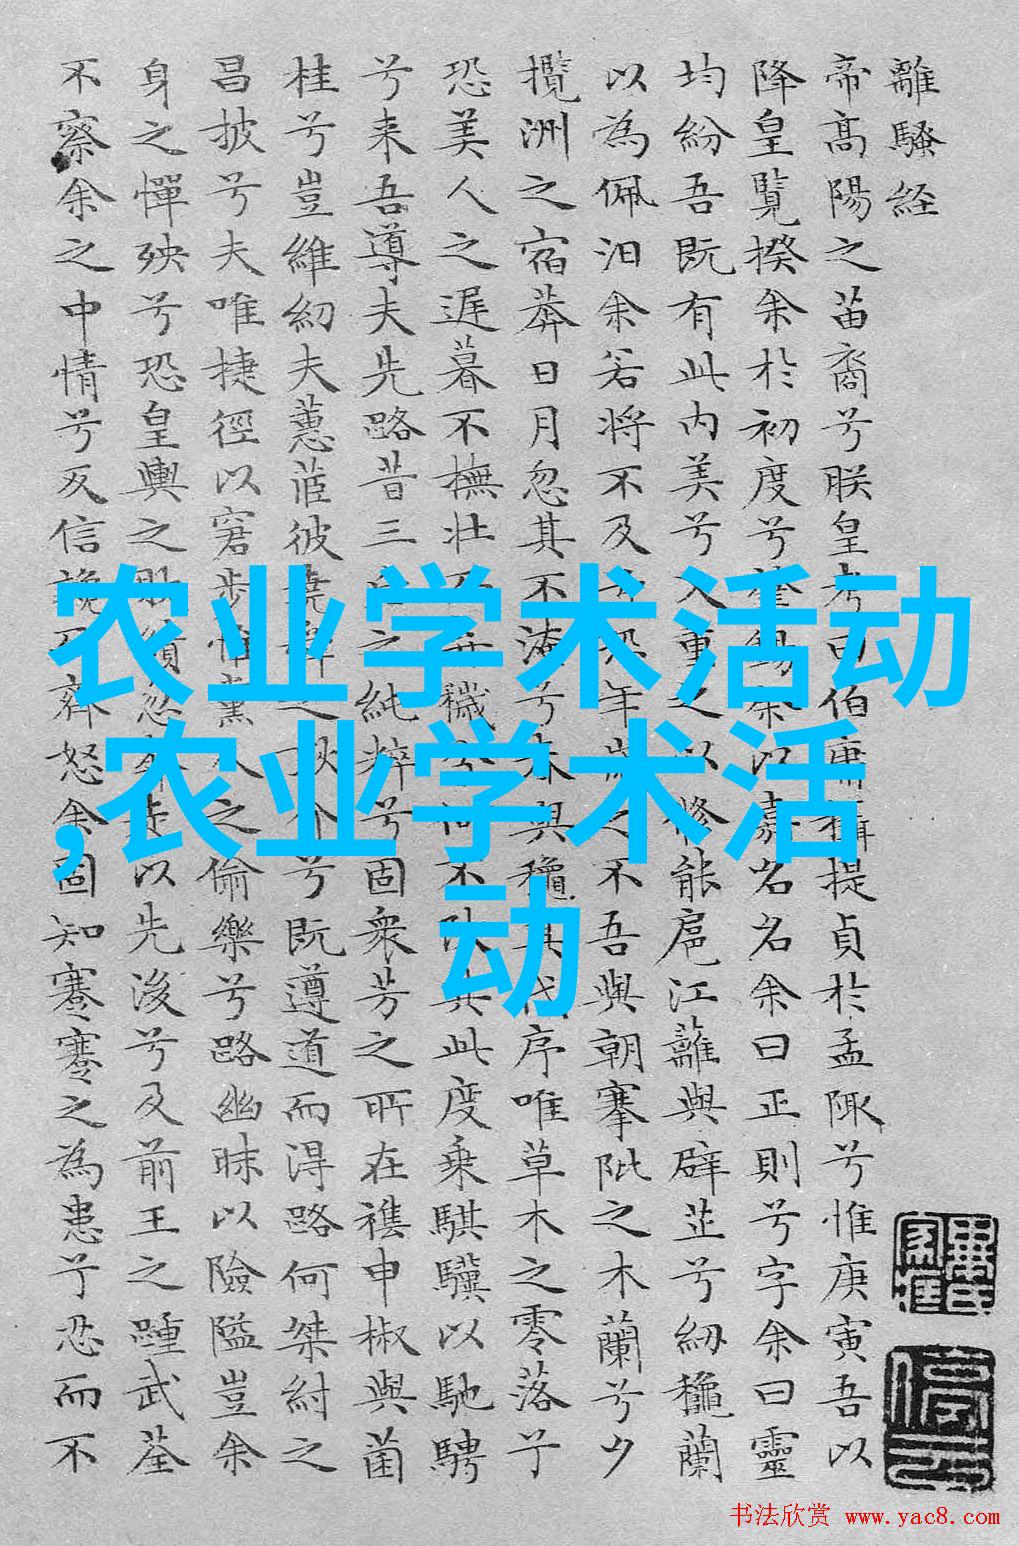 離騷経
帝高陽之苗裔兮朕皇考曰伯庸攝提貞於孟陬兮惟庚寅吾以
降皇覽揆余於初度兮肇錫余以嘉名名余曰正則兮字余曰靈
均紛吾既有此内美兮又重之以修能扈江蘺與辟芷兮紉穐蘭
以為佩汨余若將不及兮恐年歲之不吾與朝搴阰之木蘭兮夕
攬洲之宿莽日月忽其不淹兮春與穐其代序唯草木之零落兮
恐美人之遅暮不撫壯而棄穢兮何不改其此度乗騏驥以馳騁
兮来吾導夫先路昔三后之純粹兮固衆芳之所在襍申椒與菌
桂兮豈維紉夫蕙茝彼堯舜之耿介兮既遵道而得路何桀紂之
昌披兮夫唯捷徑以窘步惟黨人之偷樂兮路幽昧以險隘豈余
身之憚殃兮恐皇輿之敗績忽奔走以先後兮及前王之踵武荃
不察余之中情兮反信讒而齌怒余固知謇謇之為患兮忍而不
农业学术活动
,农业学术活
动
书法欣赏 www.yac8.com